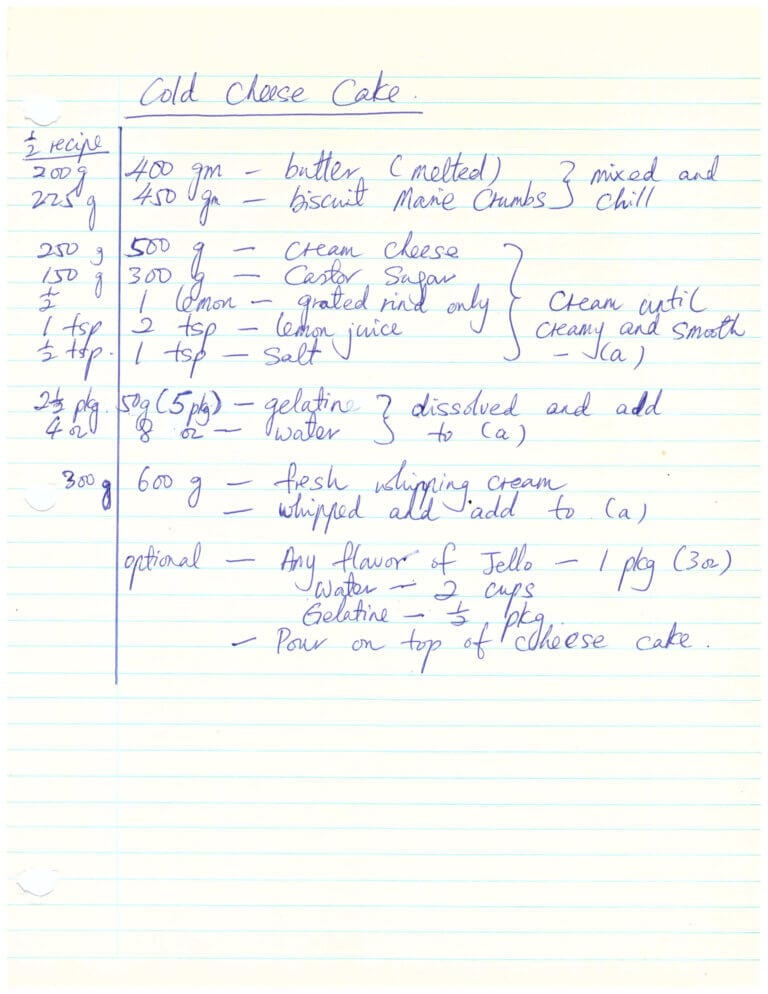 Cold Cheese Cake.
½ recipe
200g 400 gm - butter (melted) } mixed and
225 g 450 gm - biscuit Marie Crumbs } chill
250 g 500 g - cream cheese
150 g 300 g - Castor Sugar
½ 1 lemon - grated rind only } Cream until
1 tsp 2 tsp - lemon juice creamy and smooth
½ tsp. 1 tsp - Salt - (a)
2½ pkg. 50g (5 pkg) - gelatine } dissolved and add
4 oz 8 oz - water } to (a)
300 g 600 g - fresh whipping cream
- whipped and add to (a)
optional - Any flavor of Jello - 1 pkg (3oz)
Water - 2 cups
Gelatine - ½ pkg
- Pour on top of cheese cake.